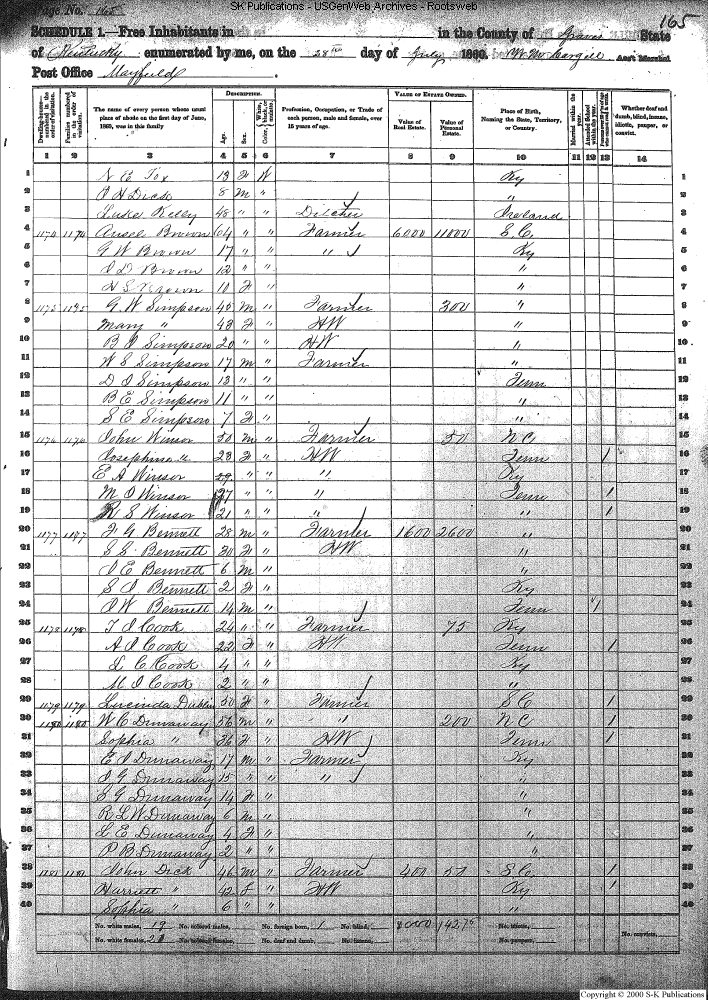 SK Publications - USGenWeb Archives - Rootsweb
Page No. 165
165
SCHEDULE 1.—Free Inhabitants in in the County of Graves State
of Kentucky enumerated by me, on the 28th day of July 1860. Ass't Marshal
Post Office Mayfield
Dwelling-houses—numbered in the order of visitation.
Families numbered in the order of visitation.
The name of every person whose usual place of abode on the first day of June, 1860, was in this family
DESCRIPTION.
Age.
Sex.
Color, White, black, or mulatto.
Profession, Occupation, or Trade of each person, male and female, over 15 years of age.
VALUE OF ESTATE OWNED.
Value of Real Estate.
Value of Personal Estate.
Place of Birth, Naming the State, Territory, or Country.
Married within the year.
Attended School within the year.
Whether deaf and dumb, blind, insane, idiotic, pauper, or convict.
1 2 3 4 5 6 7 8 9 10 11 12 13 14
1 N E Fox 13 F W Ky 1
2 Dick 8 M " " 2
3 Luke Kelly 48 " " Ditcher Ireland 3
4 1174 1174 Brown 64 " " Farmer 6000 11000 S.C. 4
5 G W Brown 17 " " " Ky 5
6 J D Brown 12 " " " 6
7 H S Brown 10 F " " 7
8 1175 1175 G W Simpson 45 M " Farmer 300 " 8
9 Mary " 43 F " HW " 9
10 B J Simpson 20 " " HW " 10
11 W S Simpson 17 M " Farmer " 11
12 D J Simpson 13 " " Tenn 12
13 B E Simpson 11 " " " 13
14 S E Simpson 7 F " " 14
15 1176 1176 John Winsor 30 M " Farmer 50 N C 15
16 Josephine " 23 F " HW Tenn / 16
17 E A Winsor 29 " " " Ky 17
18 M J Winsor 27 " " " Tenn / 18
19 R S Winsor 21 " " " " / 19
20 1177 1177 F G Bennett 28 M " Farmer 1600 2600 " 20
21 S S Bennett 30 F " HW " 21
22 J E Bennett 6 M " " 22
23 S J Bennett 2 F " Ky 23
24 J W Bennett 14 M " Tenn / 24
25 1178 1178 T J Cook 24 " " Farmer 75 Ky 25
26 A J Cook 22 F " HW Tenn / 26
27 L C Cook 4 " " Ky 27
28 M J Cook 2 " " " 28
29 1179 1179 Lucinda Dublin 50 F " Farmer S C / 29
30 1180 1180 W C Dunaway 56 M " " 200 N C / 30
31 Sophia " 36 F " HW Tenn / 31
32 E J Dunaway 17 M " Farmer Ky 32
33 J G Dunaway 15 " " " " 33
34 S G Dunaway 14 F " " 34
35 R L W Dunaway 6 M " " 35
36 L E Dunaway 4 F " " 36
37 P B Dunaway 2 " " " 37
38 1181 1181 John Dick 46 M " Farmer 400 50 S.C. / 38
39 Harriett " 42 F " HW Ky / 39
40 Sophia " 6 " " " 40
No. white males, 19 No. colored males, No. foreign born, 1 No. blind, 8000 14275 No. idiotic,
No. white females, No. colored females, No. deaf and dumb, No. insane, No. paupers, No. convicts,
Copyright © 2000 S-K Publications